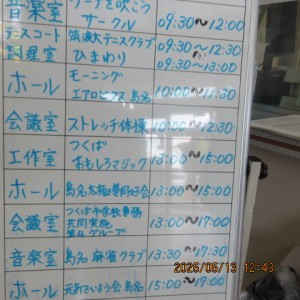 音楽室 サークル 09:30〜12:00
テニスコート 筑波大テニスクラブ 09:30〜12:30
調理室 ひまわり 09:30〜13:00
ホール モーニング
エアロビクス 島名 10:00〜11:30
会議室 ストレッチ体操 10:00〜12:30
工作室 つくば
おもしろマジック 13:00〜15:00
ホール 島名太極拳同好会 13:00〜15:00
会議室 つくば市学校事務
共同実施
第4グループ 13:00〜17:00
音楽室 島名 麻雀クラブ 13:30〜17:30
ホール 元気でいよう会 島名 15:00〜17:00
2025/05/13 12:43